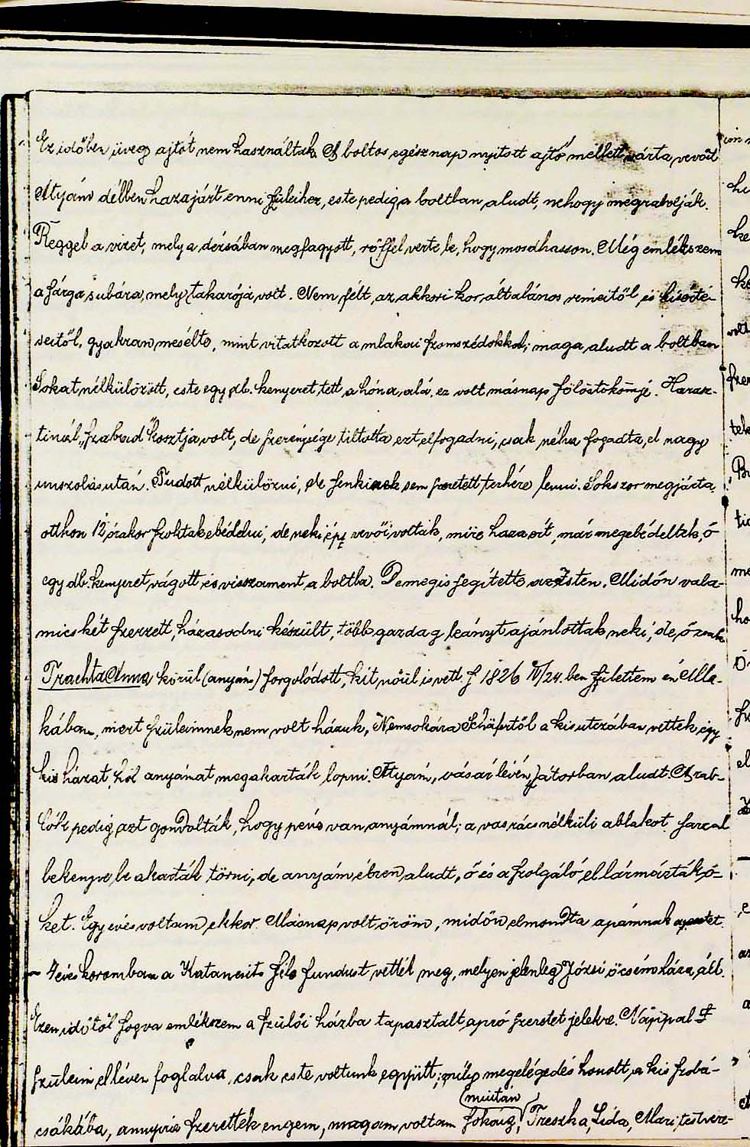 Ez időben üveg ajtót nem használtak. A boltos egész nap nyitott ajtó mellett várta vevőit
Atyám délben hazajárt enni szüleihez, este pedig a boltban aludt, nehogy megrabolják.
Reggel a vizet, mely a dézsában megfagyott, rőffel verte be, hogy mosdhasson. Még emlékszem
a sárga subára, mely takarója volt. Nem félt, az akkori kor általános rémeitől és kisérte-
seitől, gyakran mesélte, mint vitatkozott a mlakai szomszédokkal; maga aludt a boltban
Sokat nélkülözött, este egy db. kenyeret tett a hóna alá, ez volt másnap fölöstökömje. Haraz-
tinál, szabad kosztja volt, de szerénysége tiltotta ezt elfogadni, csak néha fogadta el nagy
unszolás után. Tudott nélkülözni, de senkinek sem szeretett terhére lenni. Sokszor megjárta,
otthon 12 órakor szoktak ebédelni, de neki épp vevői voltak, mire haza ért, már megebédeltek, ő
egy db. kenyeret vágott és visszament a boltba. De mégis segítette az Isten. Midőn vala-
micskét szerzett, házasodni készült, több gazdag leányt ajánlottak neki, de ő csak
Trachta Anna körül (anyám) forgolódott, kit nőül is vett. 1826 IV/24.-ben születtem én Mla-
kában, mert szüleimnek nem volt házuk. Nemsokára Schäfertől a kis utczában vettek egy
kis házat, hol anyámat meg akarták lopni. Atyám, vásár lévén sátorban aludt. A rab-
lók pedig azt gondolták, hogy pénz van anyámnál; a vasrács nélküli ablakot sárral
bekenve, be akarták törni, de anyám ébren aludt, ő és a szolgáló ellármázták ő-
ket. Egy éves voltam ekkor. Másnap volt öröm, midőn elmondta apámnak
– 4 éves koromban a Katancsits féle fundust vették meg, melyen jelenleg Józsi öcsém háza áll.
Ezen időtől fogva emlékszem a szülői házba tapasztalt apró szeretet jelekre. Nappal
szüleim el lévén foglalva, csak este voltunk együtt; megelégedés honolt a kis szobá-
miután
csákába, annyira szerettek engem, magam voltam sokáig, Treszka, Lida, Mari, testvér-